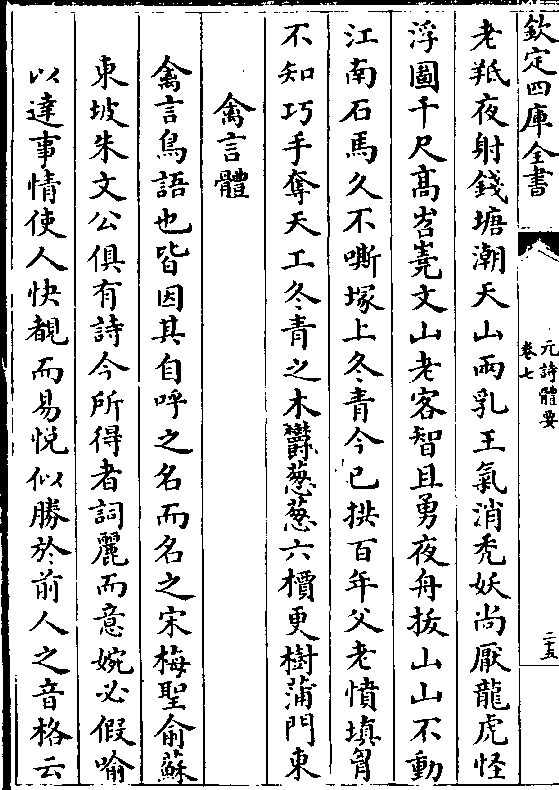 欽定四庫全書
元詩體要
卷七
二十五
老羝夜射錢塘潮天山兩乳王氣消禿妖尚厭龍虎怪
浮圖千尺髙岧嶤文山老客智且勇夜舟拔山山不動
江南石馬久不嘶塚上冬青今已拱百年父老憤填胷
不知巧手奪天工冬青之木欝葱葱六櫝更樹蒲門東
禽言體
禽言鳥語也皆因其自呼之名而名之宋梅聖俞蘇
東坡朱文公俱有詩今所得者詞麗而意婉必假喻
以達事情使人快覩而易悦似勝於前人之音格云